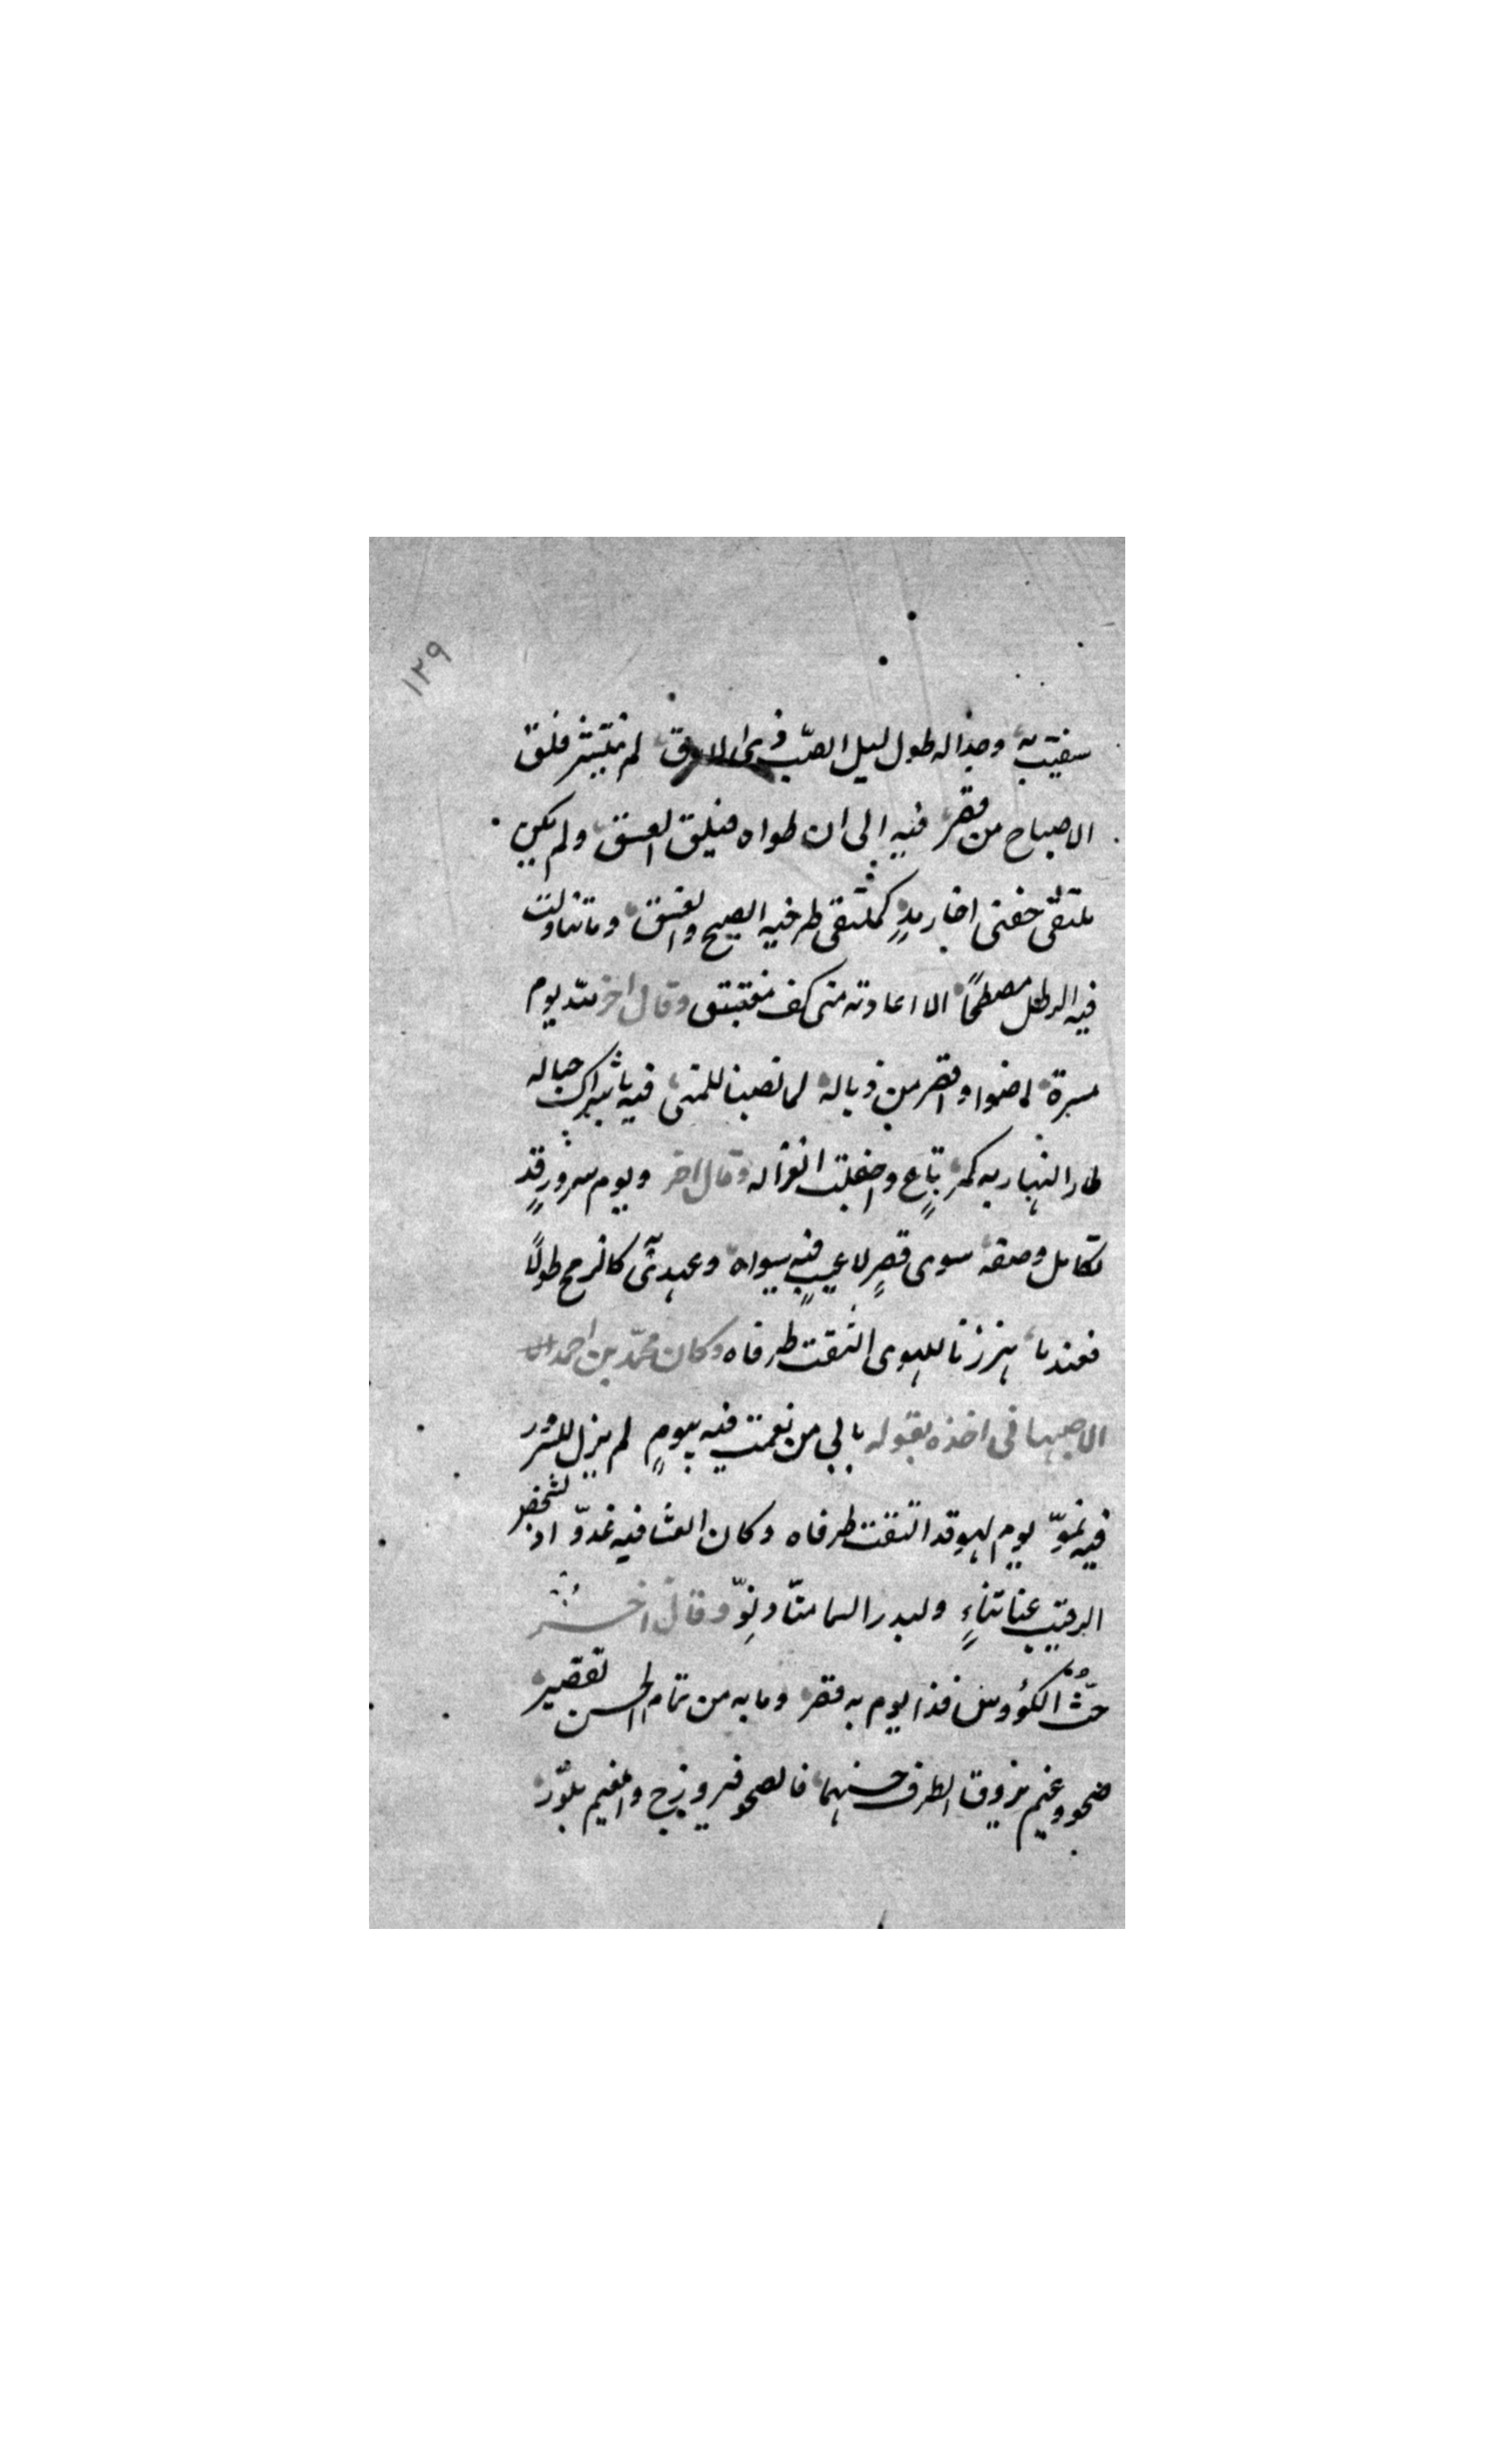 ١٢٩
سقيت به وجداله طول ليل الصبّ ذى الارق لم ينتشر فلق
الاصباح من قصر فيه الى ان طواه فيلق الغسق ولم يكن
يلتقى جفنى اخا رمدٍ كملتقى طرفيه الصبح والغسق وما تناولت
فيه الرطل مصطبحًا الا اعادته منى كف مغتبق وقال اخر لله يوم
مسرة اضوا واقصر من ذباله لما نصبنا للمنى فيه باشراك حباله
طار النهار به كمرتاعٍ واجفلت الغزاله وقال اخر ويوم سرورٍ قد
تكامل وصفه سوى قصرٍ لا عيبٍ فيه سواه وعهدى كالرمح طولًا
فعندما هززنا للهوى التقت طرفاه وكان محمّد بن احمد
الاصبهانى اخذه بقوله بابى من نعمت فيه بيومٍ لم يزل للسرور
فيه نموّ يوم لهو قد التقت طرفاه وكان العشا فيه غدوّ اذ لشخص
الرقيب عنا تناءٍ ولبدر السما منّا دنوّ وقال اخـــر
حثّ الكؤوس فذا يوم به قصر وما به من تمام الحسن تقصير
صحو وغيم يروق الطرف حسنهما فالصحو فيروزج والغيم بلّور